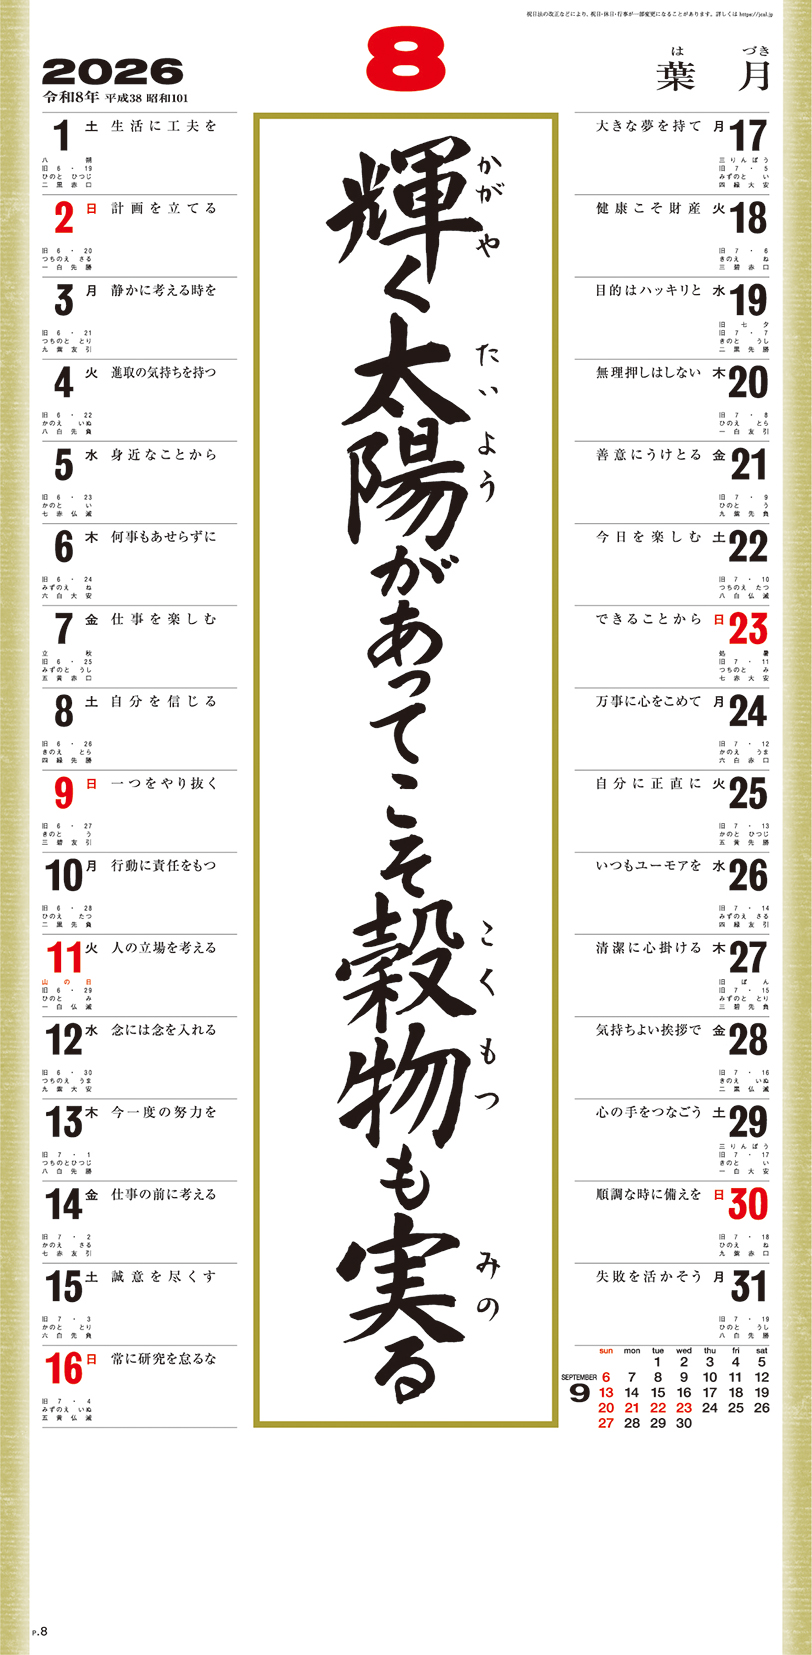 祝日法の改正などにより、祝日・休日・行事が一部変更になることがあります。詳しくは https://jcal.jp
2026
令和8年 平成38 昭和101
8
はづき
葉月
輝く太陽があってこそ穀物も実る
かがや
たいよう
こくもつ
みの
1 土 生活に工夫を
八朔
旧6・19
ひのと ひつじ
二黒赤口
2 日 計画を立てる
旧6・20
つちのえ さる
一白先勝
3 月 静かに考える時を
旧6・21
つちのと とり
九紫友引
4 火 進取の気持ちを持つ
旧6・22
かのえ いぬ
八白先負
5 水 身近なことから
旧6・23
かのと い
七赤仏滅
6 木 何事もあせらずに
旧6・24
みずのえ ね
六白大安
7 金 仕事を楽しむ
立秋
旧6・25
みずのと うし
五黄赤口
8 土 自分を信じる
旧6・26
きのえ とら
四緑先勝
9 日 一つをやり抜く
旧6・27
きのと う
三碧友引
10 月 行動に責任をもつ
旧6・28
ひのえ たつ
二黒先負
11 火 人の立場を考える
山の日
旧6・29
ひのと み
一白仏滅
12 水 念には念を入れる
旧6・30
つちのえ うま
九紫大安
13 木 今一度の努力を
旧7・1
つちのとひつじ
八白先勝
14 金 仕事の前に考える
旧7・2
かのえ さる
七赤友引
15 土 誠意を尽くす
旧7・3
かのと とり
六白先負
16 日 常に研究を怠るな
旧7・4
みずのえ いぬ
五黄仏滅
大きな夢を持て 月 17
三りんぼう
旧7・5
みずのと い
四緑大安
健康こそ財産 火 18
旧7・6
きのえ ね
三碧赤口
目的はハッキリと 水 19
旧七夕
旧7・7
きのと うし
二黒先勝
無理押しはしない 木 20
旧7・8
ひのえ とら
一白友引
善意にうけとる 金 21
旧7・9
ひのと う
九紫先負
今日を楽しむ 土 22
旧7・10
つちのえ たつ
八白仏滅
できることから 日 23
処暑
旧7・11
つちのと み
七赤大安
万事に心をこめて 月 24
旧7・12
かのえ うま
六白赤口
自分に正直に 火 25
旧7・13
かのと ひつじ
五黄先勝
いつもユーモアを 水 26
旧7・14
みずのえ さる
四緑友引
清潔に心掛ける 木 27
旧ぼん
旧7・15
みずのと とり
三碧先負
気持ちよい挨拶で 金 28
旧7・16
きのえ いぬ
二黒仏滅
心の手をつなごう 土 29
三りんぼう
旧7・17
きのと い
一白大安
順調な時に備えを 日 30
旧7・18
ひのえ ね
九紫赤口
失敗を活かそう 月 31
旧7・19
ひのと うし
八白先勝
SEPTEMBER
9
sun mon tue wed thu fri sat
1 2 3 4 5
6 7 8 9 10 11 12
13 14 15 16 17 18 19
20 21 22 23 24 25 26
27 28 29 30
P.8